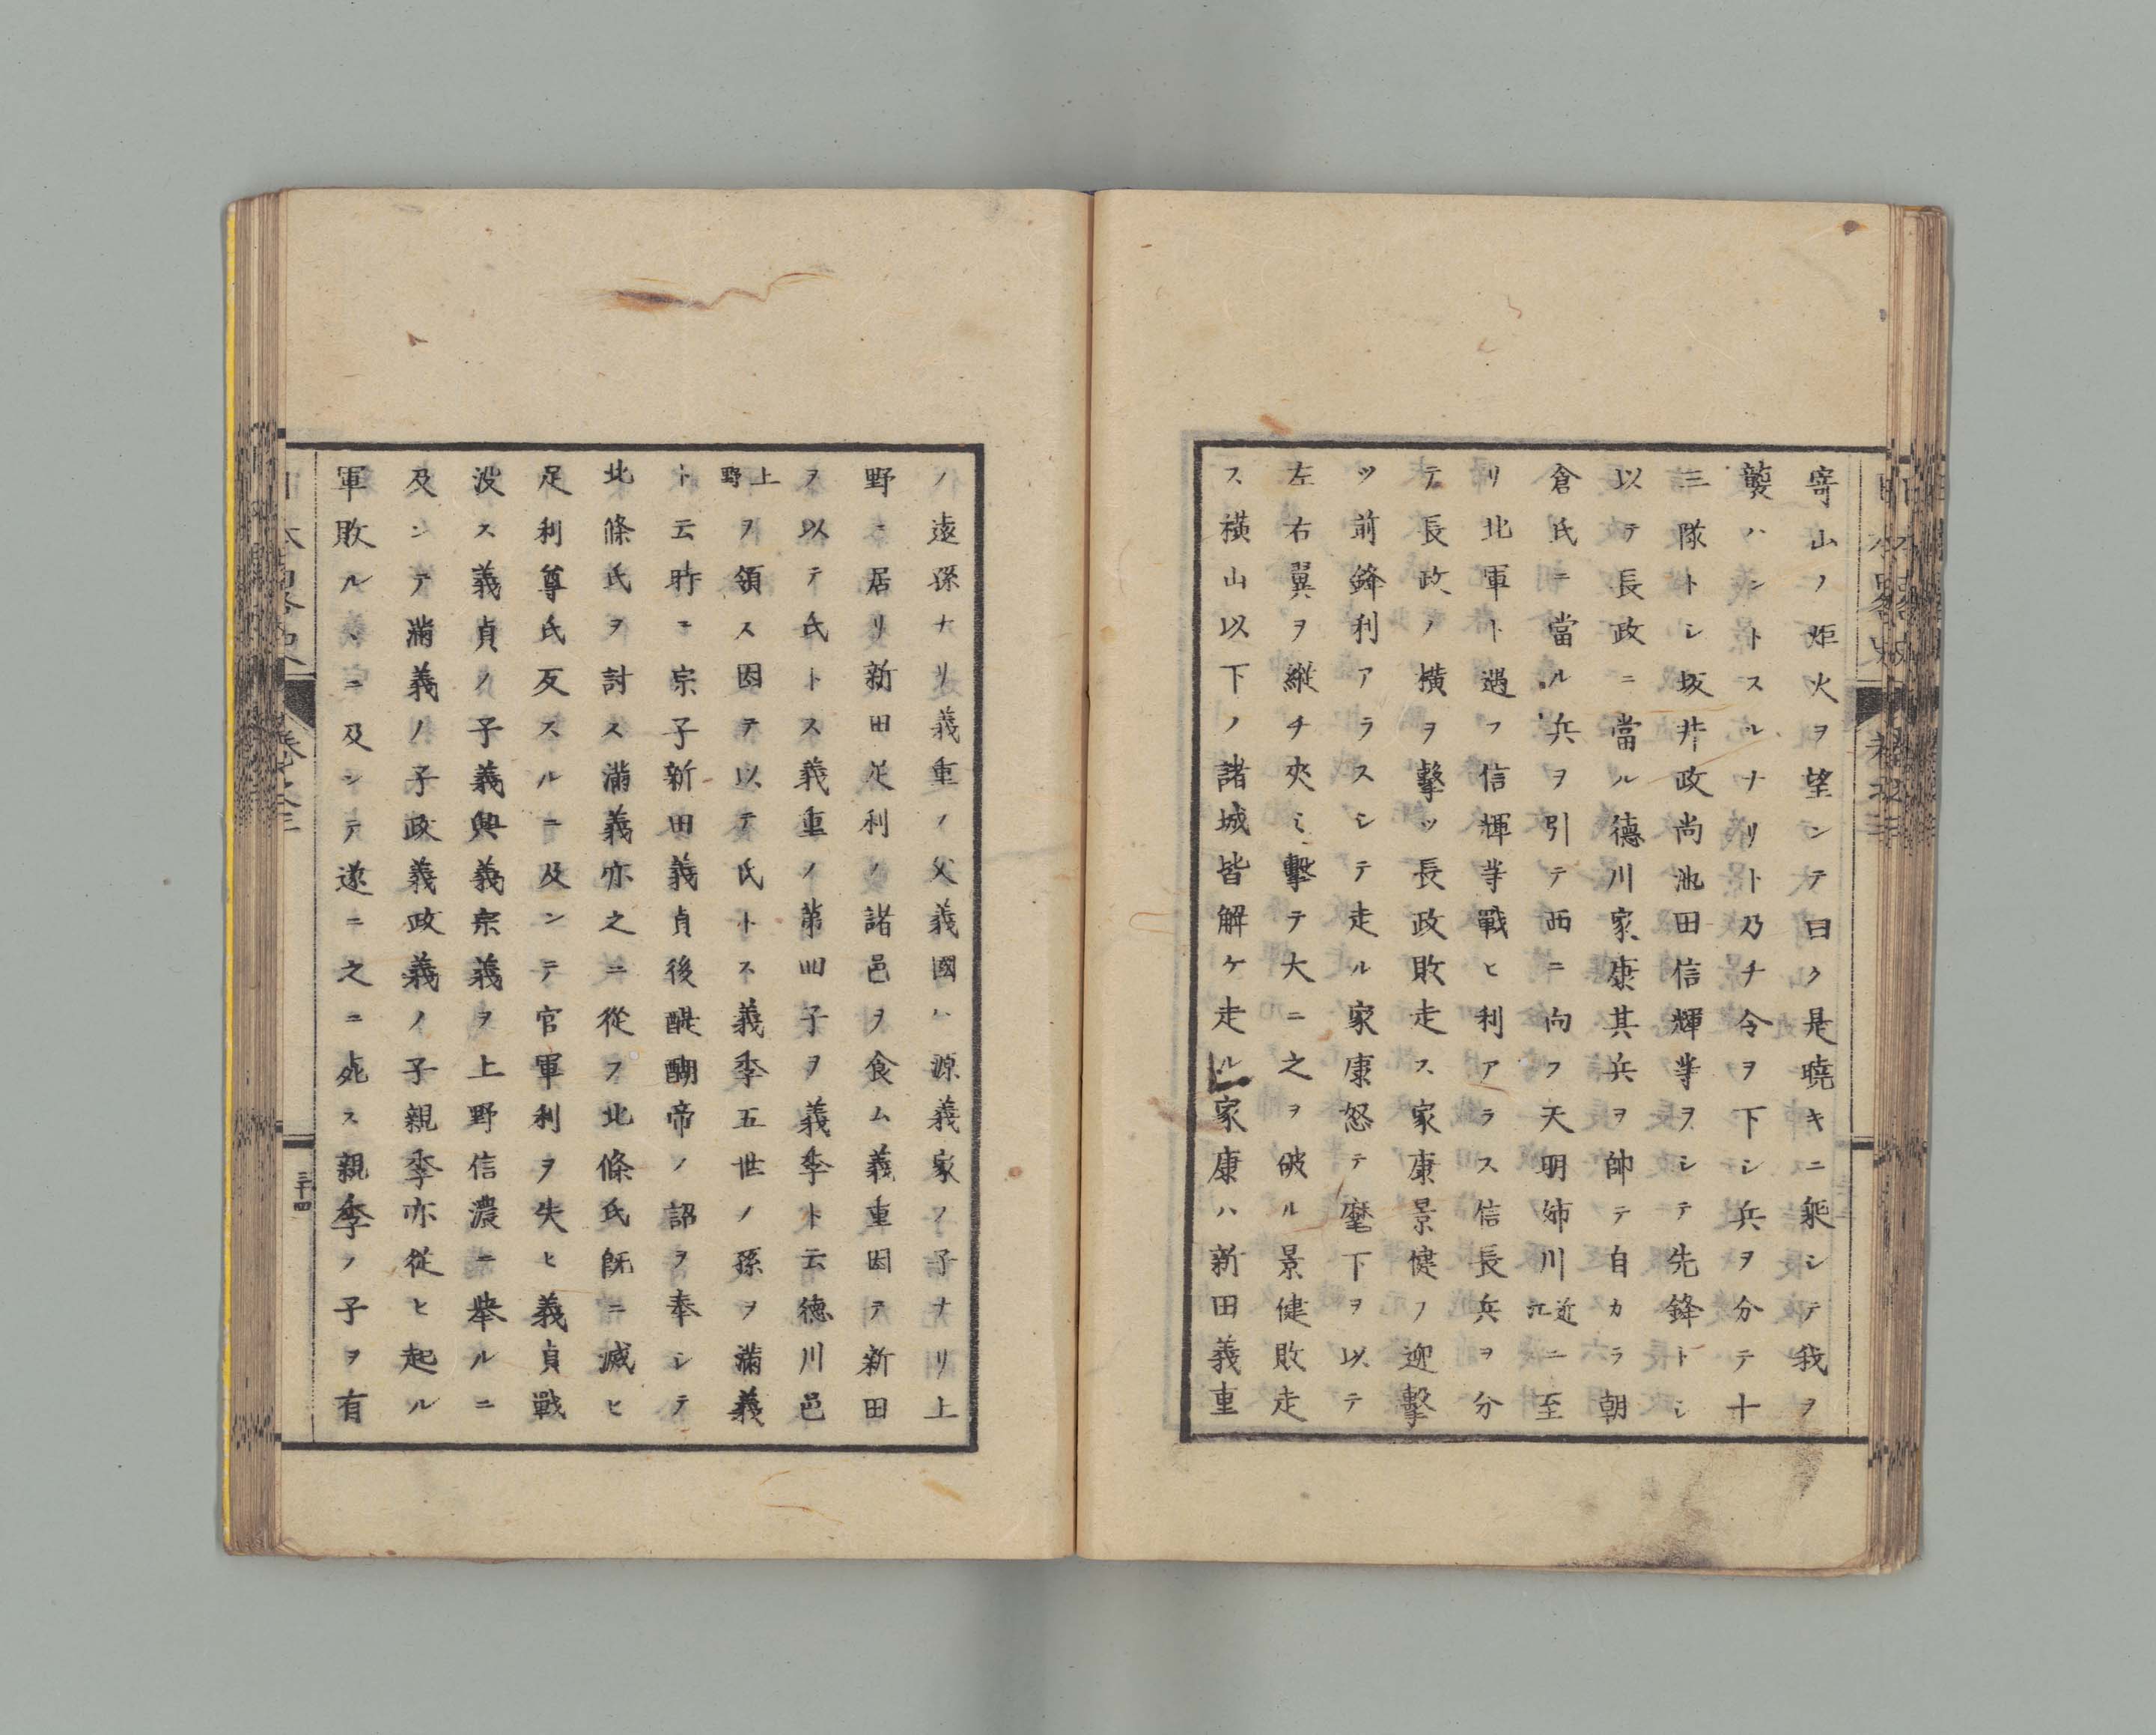 寄山ノ炬火ヲ望ンテ曰ク是曉キニ乘シテ我ヲ
襲ハントスルナリト乃チ令ヲ下シ兵ヲ分テ十
三隊トシ坂井政尚池田信輝等ヲシテ先鋒トシ
以テ長政ニ當ル德川家康其兵ヲ帥テ自カラ朝
倉氏ニ當ル兵ヲ引テ西ニ向フ天明姉川近江ニ至
リ北軍ト遇フ信輝等戰ヒ利アラス信長兵ヲ分
テ長政ノ横ヲ擊ツ長政敗走ス家康景健ノ迎擊
ツ前鋒利アラスシテ走ル家康怒テ麾下ヲ以テ
左右翼ヲ縱チ夾ミ擊テ大ニ之ヲ破ル景健敗走
ス横山以下ノ諸城皆解ケ走ル家康ハ新田義重
ノ遠孫ナリ義重ノ父義國ハ源義家ノ子ナリ上
野ニ居リ新田足利ノ諸邑ヲ食ム義重因テ新田
ヲ以テ氏トス義重ノ第四子ヲ義季ト云德川邑
上野ヲ領ス因テ以テ氏トス義季五世ノ孫ヲ滿義
ト云時ニ宗子新田義貞後醍醐帝ノ詔ヲ奉シテ
北條氏ヲ討ス滿義亦之ニ從フ北條氏既ニ滅ヒ
足利尊氏反スルニ及ンテ官軍利ヲ失ヒ義貞戰
沒ス義貞ノ子義興義宗義ヲ上野信濃ニ擧ルニ
及ンテ滿義ノ子政義政義ノ子親季亦從ヒ起ル
軍敗ルヽニ及ンテ遂ニ之ニ死ス親季ノ子ヲ有
三十四